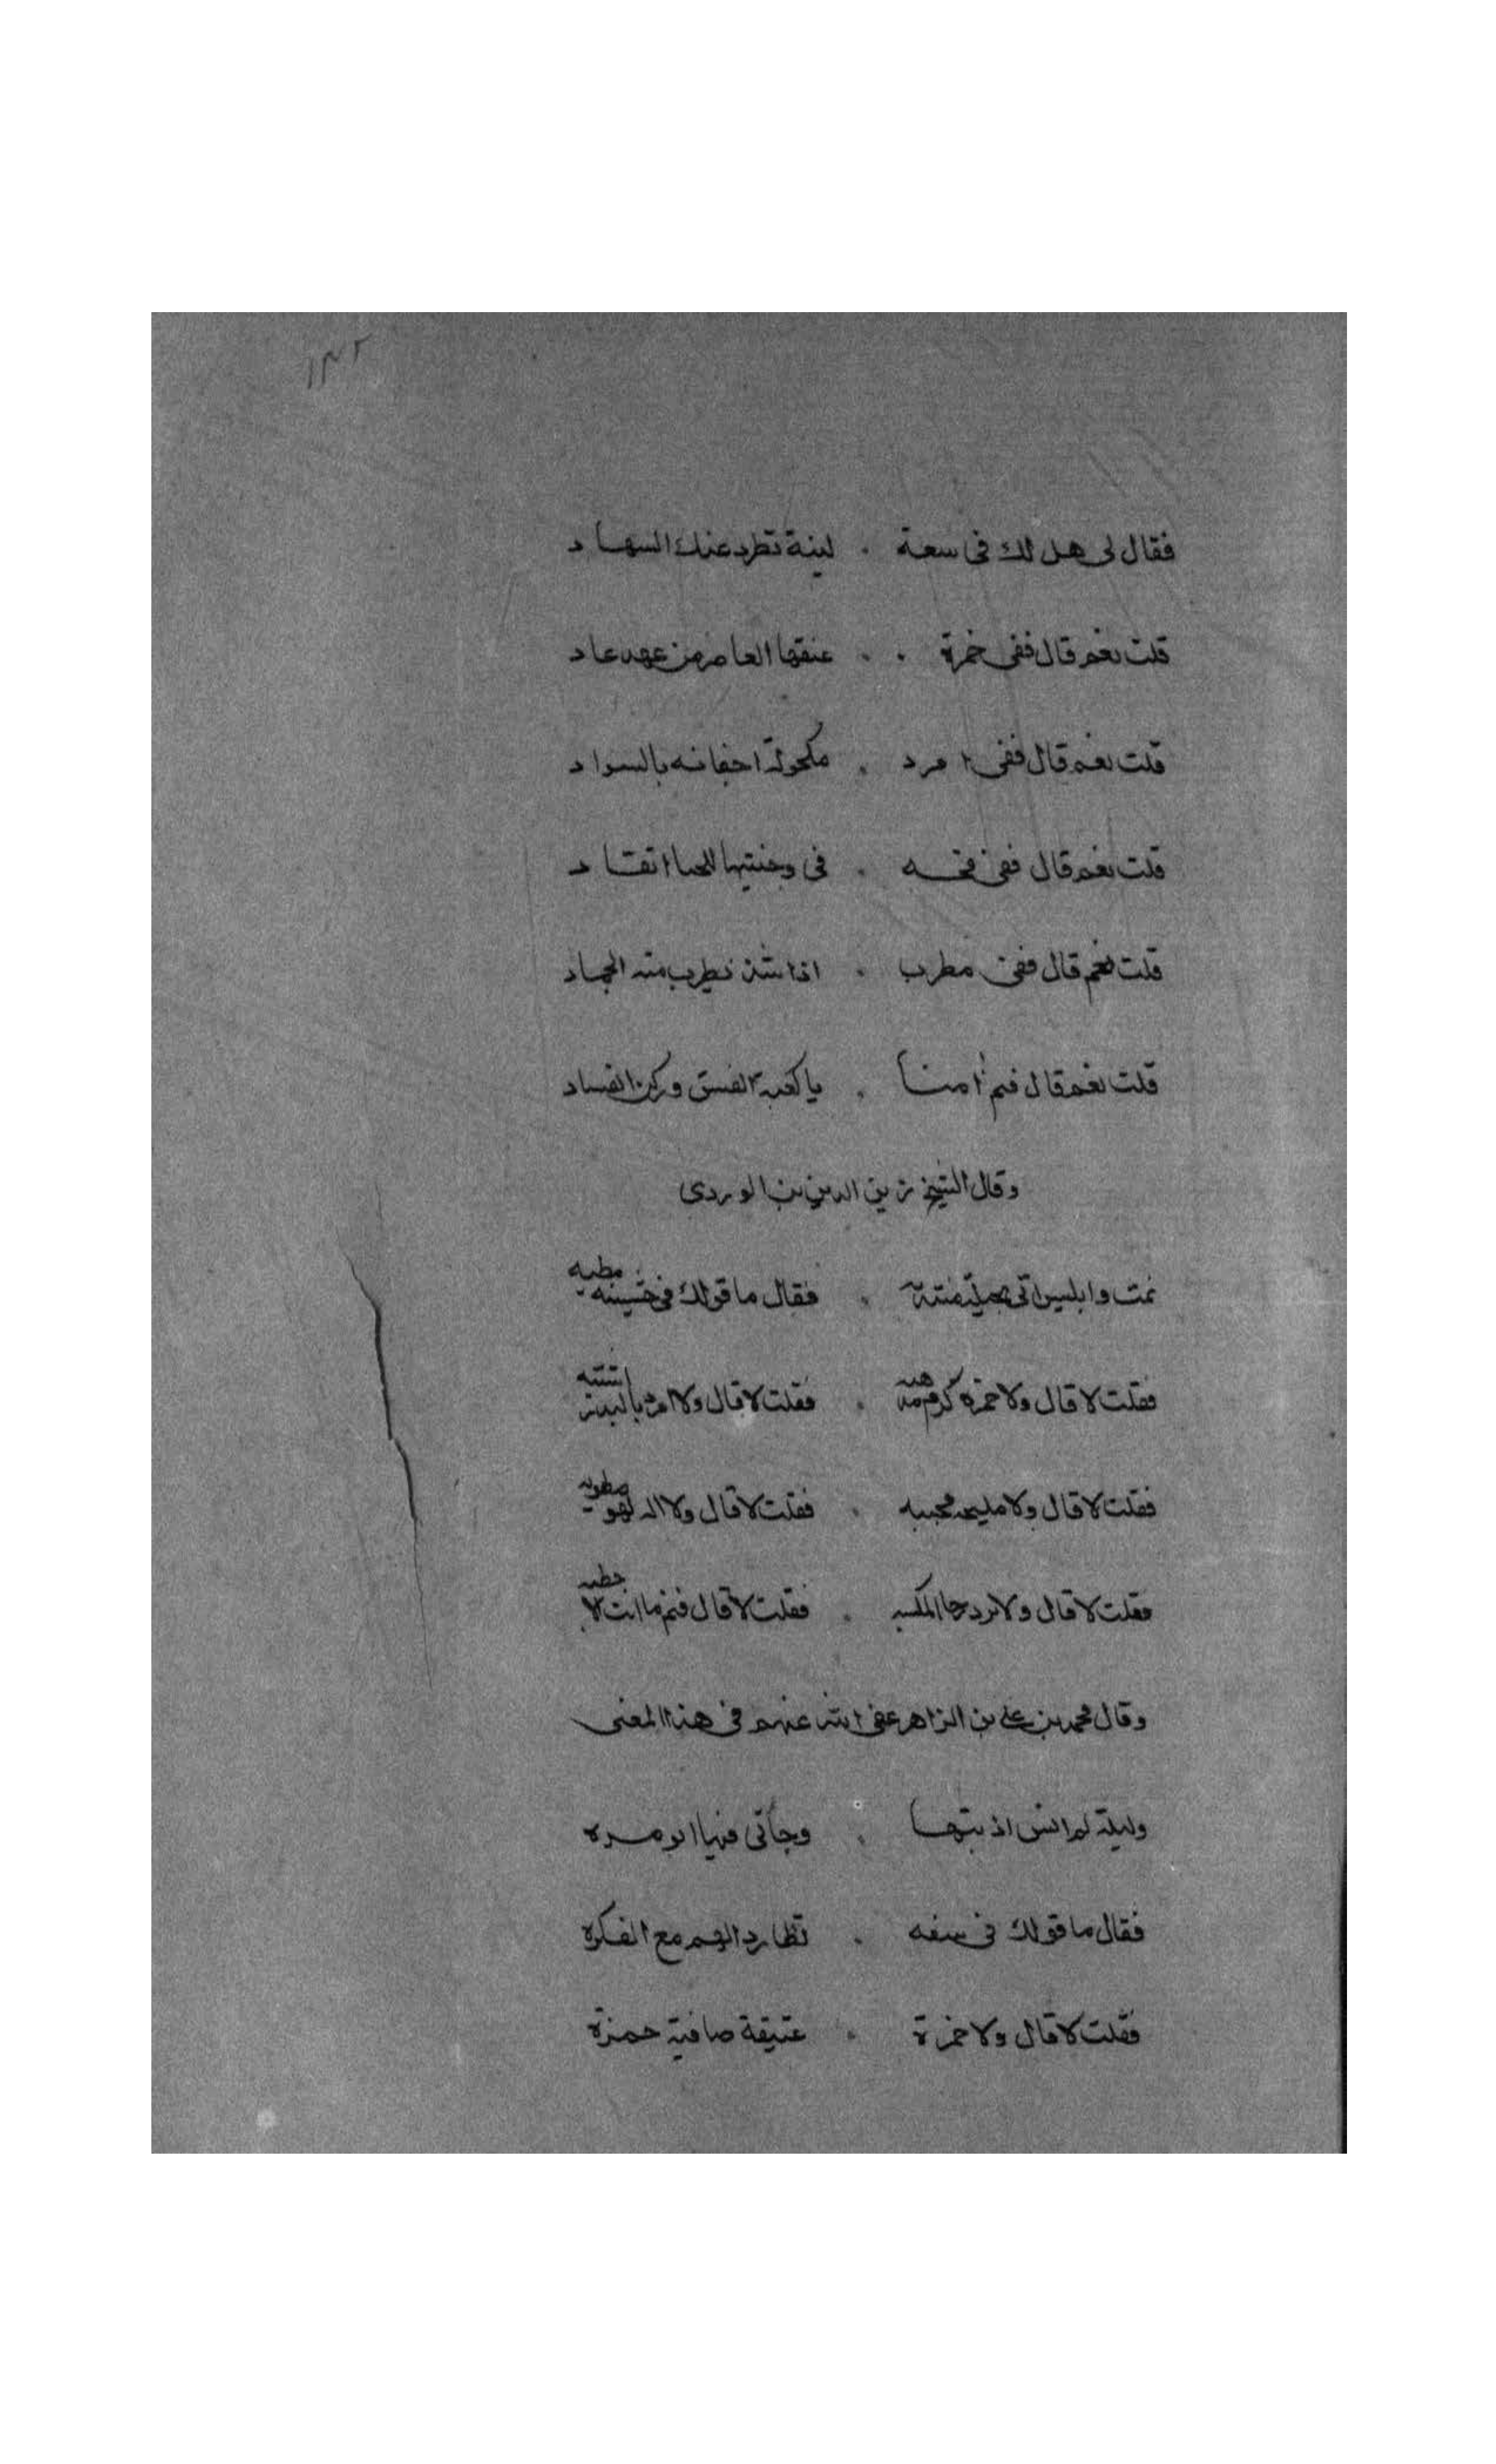 ١٣٢
فقال لى هل لك فى سعة . لينة تطرد عنك السهاد
قلت نعم قال ففى خمرة . . عتقها العاصر من عهد عاد
قلت نعم قال ففى امرد . مكحولة اجفانه بالسواد
قلت نعم قال ففى قحبه . فى وجنتيها للحيا اتقاد
قلت نعم قال ففى مطرب . اذا شدى يطرب منه الجماد
قلت نعم قال فنم امنا . يا كعبة الفسق وركن الفساد
وقال الشيخ زين الدين بن الوردى
نمت وابليس اتى بحيلة منتنة . فقال ما قولك فى حشيشه مطيبه
فقلت لا قال ولا خمرة كرم مذهبه . فقلت لا قال ولا امرد بالبدر اشتبه
فقلت لا قال ولا مليحه محببه . فقلت لا قال ولا الة لهو مطربه
فقلت لا قال ولا نرد جا المكسبه . فقلت لا قال فنم ما انت الا حطبه
وقال محمد بن على بن الزاهر عفى الله عنهم فى هذا المعنى
وليلة لم انس اذ بتها . وجاتى فيها ابو مره
فقال ما قولك فى سفه . تطارد الهم مع الفكره
فقلت لا قال ولا خمرة . عتيقة صافية حمزة